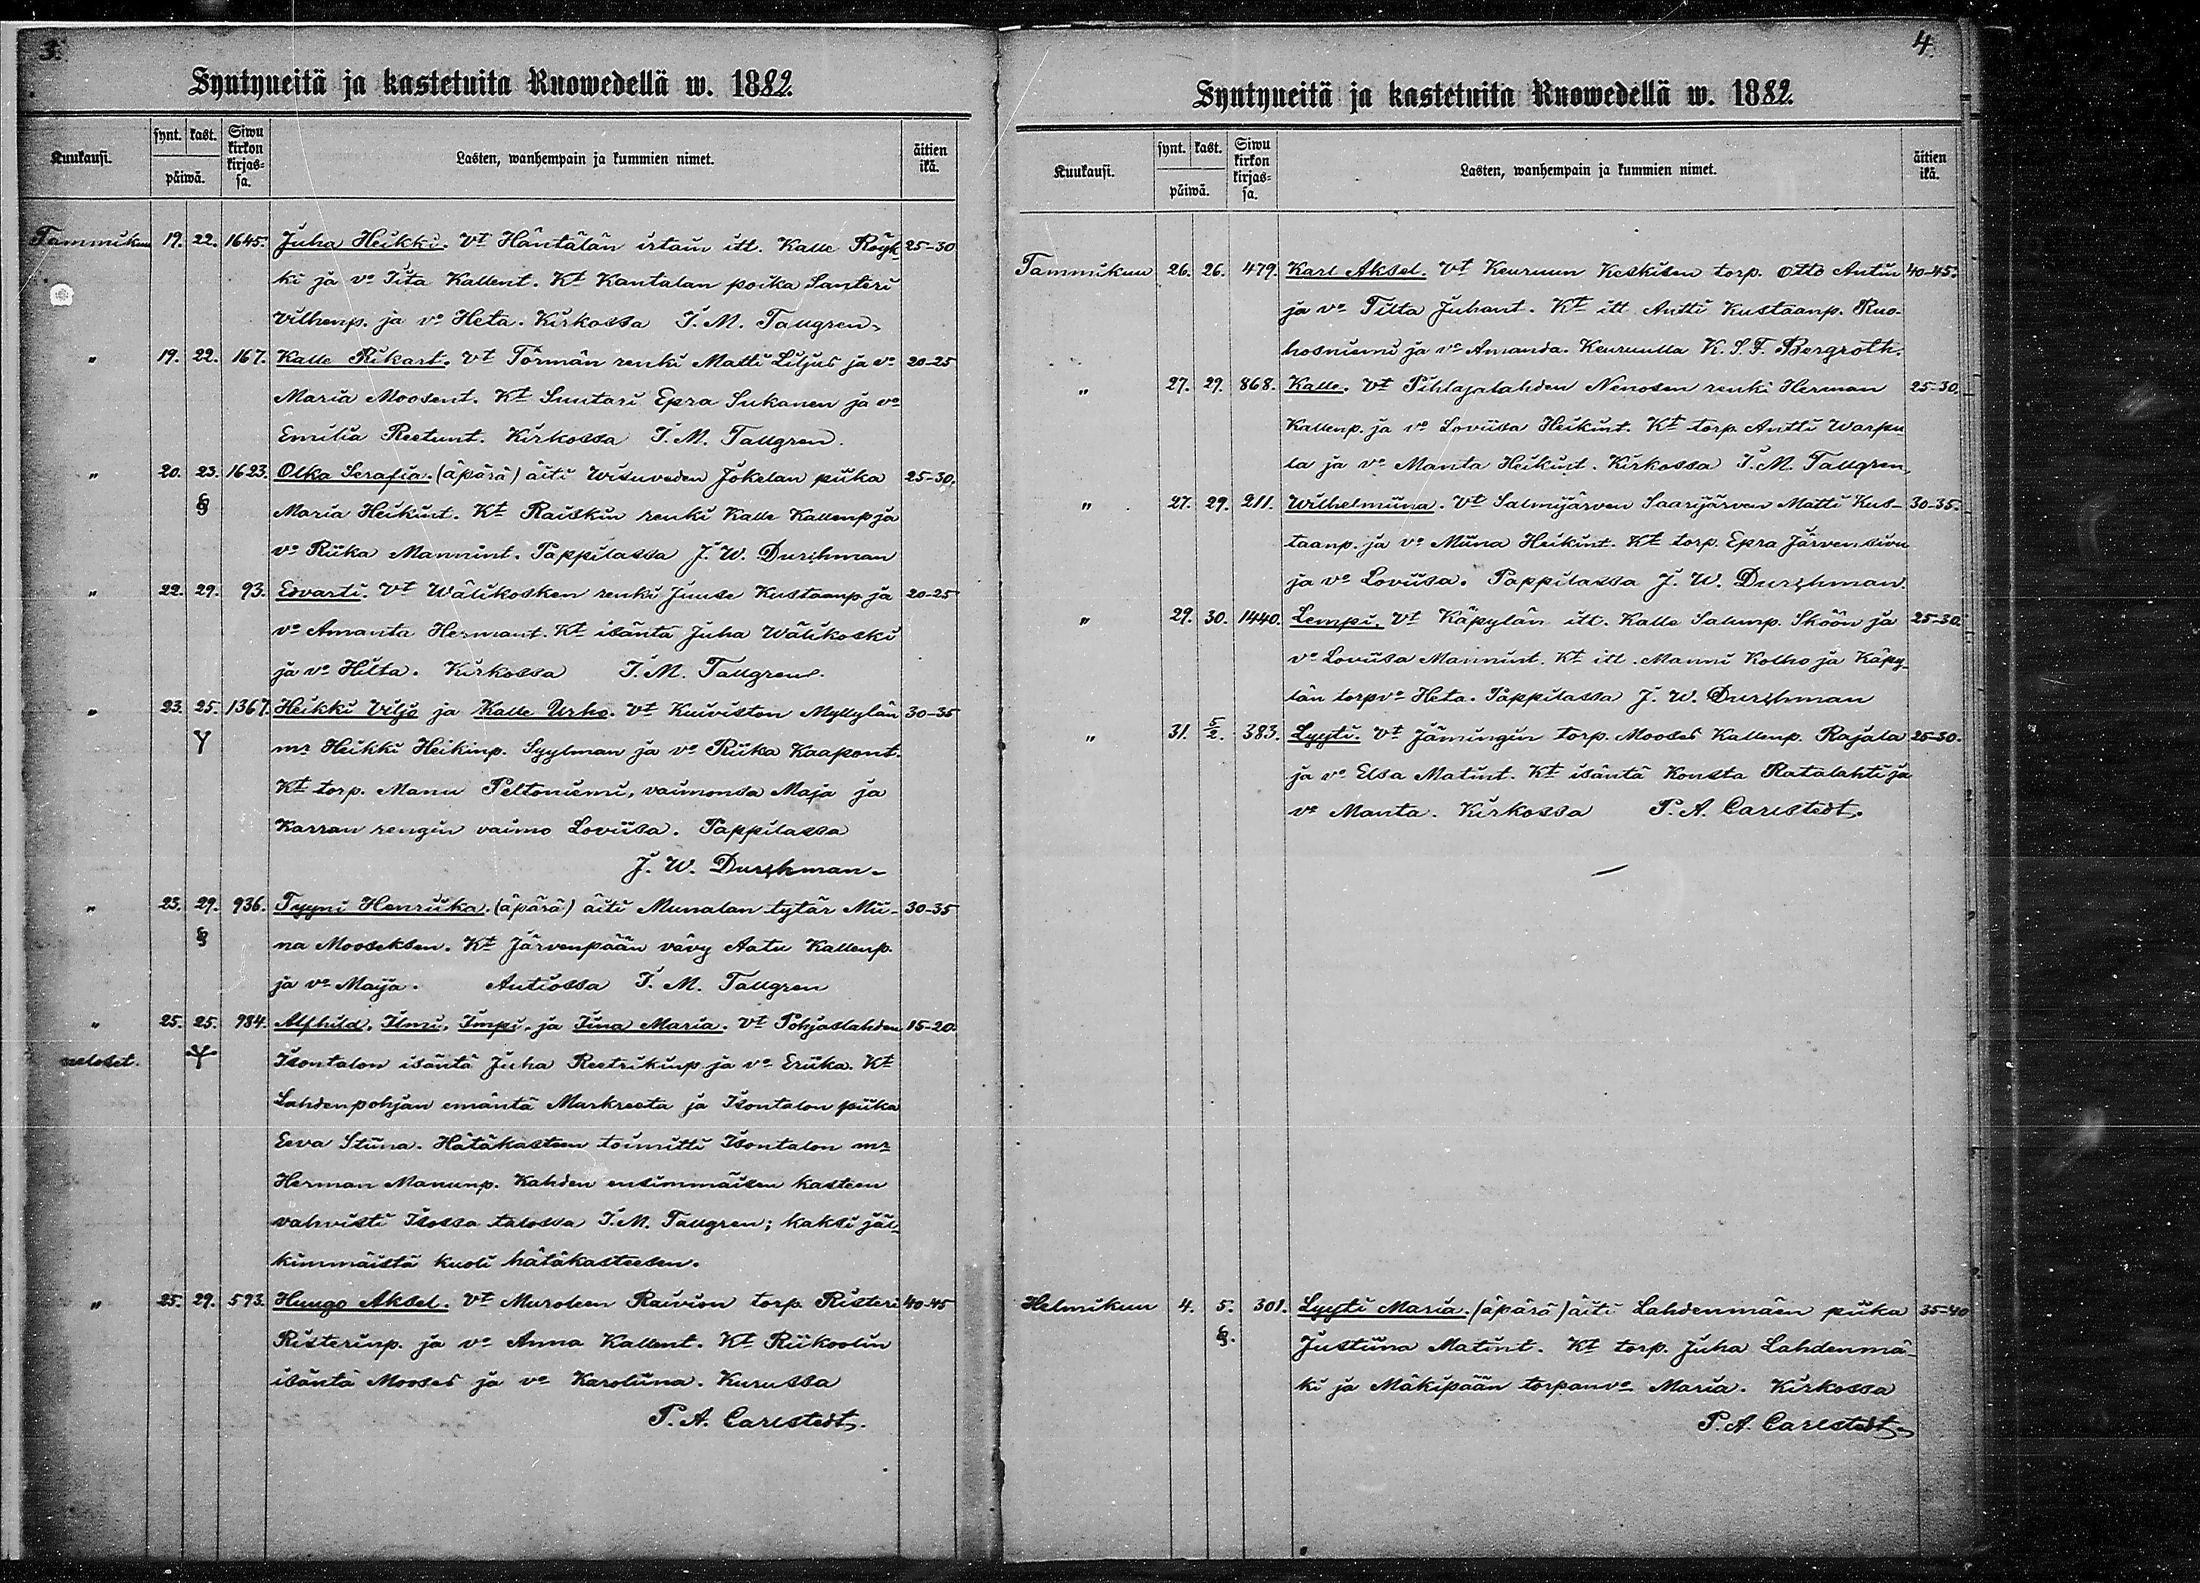 3.
Syntyneitä ja kastetuita Ruowedellä w. 1882.
Kuukausi. synt. kast. päiwä. Siwu kirkon kirjas=sa. Lasten, wanhempain ja kummien nimet. äitien ikä.
Tammikuu 19. 22. 1645. Juha Heikki. Vt Häntälän irtain itt. Kalle Röyk- 25-30
ki ja vo Iita Kallent. Kt Kantalan poika Santeri
Vilhenp. ja vo Heta. Kirkossa I. M. Tallgren.
" 19. 22. 167. Kalle Rikart. Vt Törmän renki Matti Liljus ja vo 20-25
Maria Moosent. Kt Suutari Epra Sukanen ja vo
Emilia Reetunt. Kirkossa I. M. Tallgren.
" 20. 23. 1623. Olka Serafia. (äpärä) äiti Wisuveden Jokelan piika 25-30.
§ Maria Heikint. Kt Raiskin renki Kalle Kallenp ja
vo Riika Mannint. Pappilassa J. W. Durchman
" 22. 29. 93. Edvarti. Vt Wälikosken renki Juuse Kustaanp ja 20-25
vo Amanta Hermant. Kt isäntä Juha Wälikoski
ja vo Hilta. Kirkossa I. M. Tallgren.
" 23. 25. 1367. Heikki Viljo ja Kalle Urho. Vt Kuiviston Myllylän 30-35
Y mr Heikki Heikinp. Syylman ja vo Riika Kaapont.
Kt torp. Manu Peltoniemi, vaimonsa Maja ja
Karran rengin vaimo Loviisa. Pappilassa
J. W. Durchman.
" 23. 29. 936. Tyyni Henriika. (äpärä) äiti Munalan tytär Mii- 30-35
§ na Mooseksen. Kt Järvenpään vävy Aatu Kallenp.
ja vo Maija. Autiossa I. M. Tallgren
" 25. 25. 984. Alfhild, Ilmi, Impi, ja Iina Maria. Vt Pohjaslahden 15-20.
neloset. Isontalon isäntä Juha Reetrikinp ja vo Eriika. Kt
Lahdenpohjan emäntä Markreeta ja Isontalon piika
Eeva Stiina. Hätäkasteen toimitti Isontalon mr
Herman Manunp. Kahden ensimmäisen kasteen
vahvisti Isossa talossa I. M. Tallgren; kaksi jäl-
kimmäistä kuoli hätäkasteesen.
" 25. 29. 593. Huugo Aksel. Vt Muroleen Raivion torp. Risteri 40-45
Risterinp. ja vo Anna Kallent. Kt Riikoolin
isäntä Mooses ja vo Karoliina. Kurussa
P. A. Carlstedt.
4
Syntyneitä ja kastetuita Ruowedellä w. 1882.
Kuukausi. synt. kast. päiwä. Siwu kirkon kirjas=sa. Lasten, wanhempain ja kummien nimet. äitien ikä.
Tammikuu 26. 26. 479. Karl Aksel. Vt Keuruun Keskisen torp. Otto Antin 40-45.
ja vo Tilta Juhant. Kt itt Antti Kustaanp. Ruo-
hosniemi ja vo Amanda. Keuruulla K. S. F. Bergroth.
" 27. 29. 868. Kalle. Vt Pihlajalahden Nenosen renki Herman 25-30.
Kallenp. ja vo Loviisa Heikint. Kt torp. Antti Warpu
la ja vo Manta Heikint. Kirkossa I. M. Tallgren.
" 27. 29. 211. Wilhelmiina. Vt Salmijärven Saarijärven Matti Kus- 30-35.
taanp. ja vo Miina Heikint. Kt torp. Epra Järvensivu
ja vo Loviisa. Pappilassa J. W. Durchman.
" 29. 30. 1440. Lempi. Vt Käpylän itt. Kalle Salump. Sköön ja 25-30.
vo Loviisa Mannint. Kt itt. Manni Kolho ja Käpy-
län torpvo Heta. Pappilassa J. W. Durchman
" 31. 5/2. 383. Lyyti. Vt Jämingin torp. Mooses Kallenp. Rajala 25-30.
ja vo Elsa Matint. Kt isäntä Konsta Ratalahti ja
vo Manta. Kirkossa P. A. Carlstedt.
Helmikuu 4. 5. 301. Lyyti Maria. (äpärä) äiti Lahdenmäen piika 35-40
§. Justiina Matint. Kt torp. Juha Lahdenmä-
ki ja Mäkipään torpanvo Maria. Kirkossa
P. A. Carlstedt.